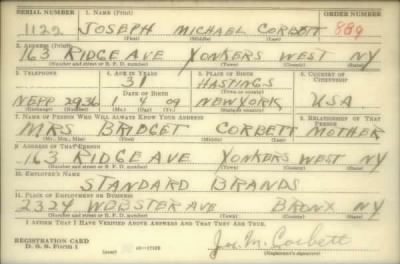 SERIAL NUMBER 1. NAME (Print) ORDER NUMBER
1122 JOSEPH MICHAEL CORBETT 889
(First) (Middle) (Last)
2. ADDRESS (Print)
163 RIDGE AVE YONKERS WEST NY
(Number and street or R. F. D. number) (Town) (County) (State)
3. TELEPHONE 4. AGE IN YEARS 5. PLACE OF BIRTH 6. COUNTRY OF CITIZENSHIP
31 HASTINGS
DATE OF BIRTH (Town or county)
NEPP 2936 1 4 09 NEW YORK USA
(Exchange) (Number) (Mo.) (Day) (Yr.) (State or country)
7. NAME OF PERSON WHO WILL ALWAYS KNOW YOUR ADDRESS 8. RELATIONSHIP OF THAT PERSON
MRS BRIDGET CORBETT MOTHER
(Mr., Mrs., Miss) (First) (Middle) (Last)
9. ADDRESS OF THAT PERSON
163 RIDGE AVE YONKERS WEST NY
(Number and street or R. F. D. number) (Town) (County) (State)
10. EMPLOYER'S NAME
STANDARD BRANDS
11. PLACE OF EMPLOYMENT OR BUSINESS
2324 AVE BRONX NY
(Number and street or R. F. D. number) (Town) (County) (State)
I AFFIRM THAT I HAVE VERIFIED ABOVE ANSWERS AND THAT THEY ARE TRUE.
REGISTRATION CARD
D. S. S. Form 1 Jos. M. Corbett
(Registrant's signature)